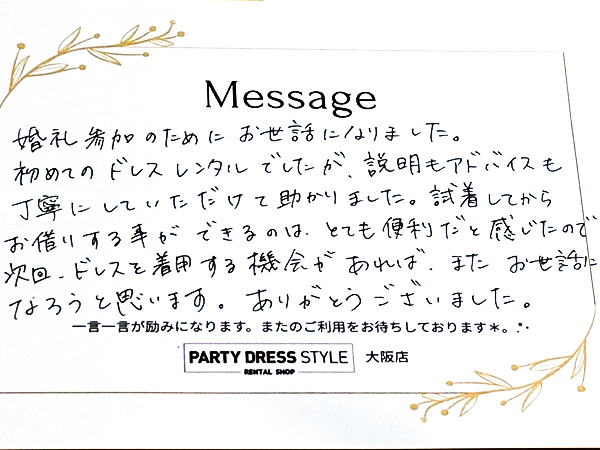 Message
婚礼参加のためにお世話になりました。
初めてのドレスレンタルでしたが、説明もアドバイスも
丁寧にしていただけて助かりました。試着してから
お借りする事ができるのは、とても便利だと感じたので
次回、ドレスを着用する機会があれば、またお世話に
なろうと思います。ありがとうございました。
一言一言が励みになります。またのご利用をお待ちしております*。
PARTY DRESS STYLE 大阪店
RENTAL SHOP